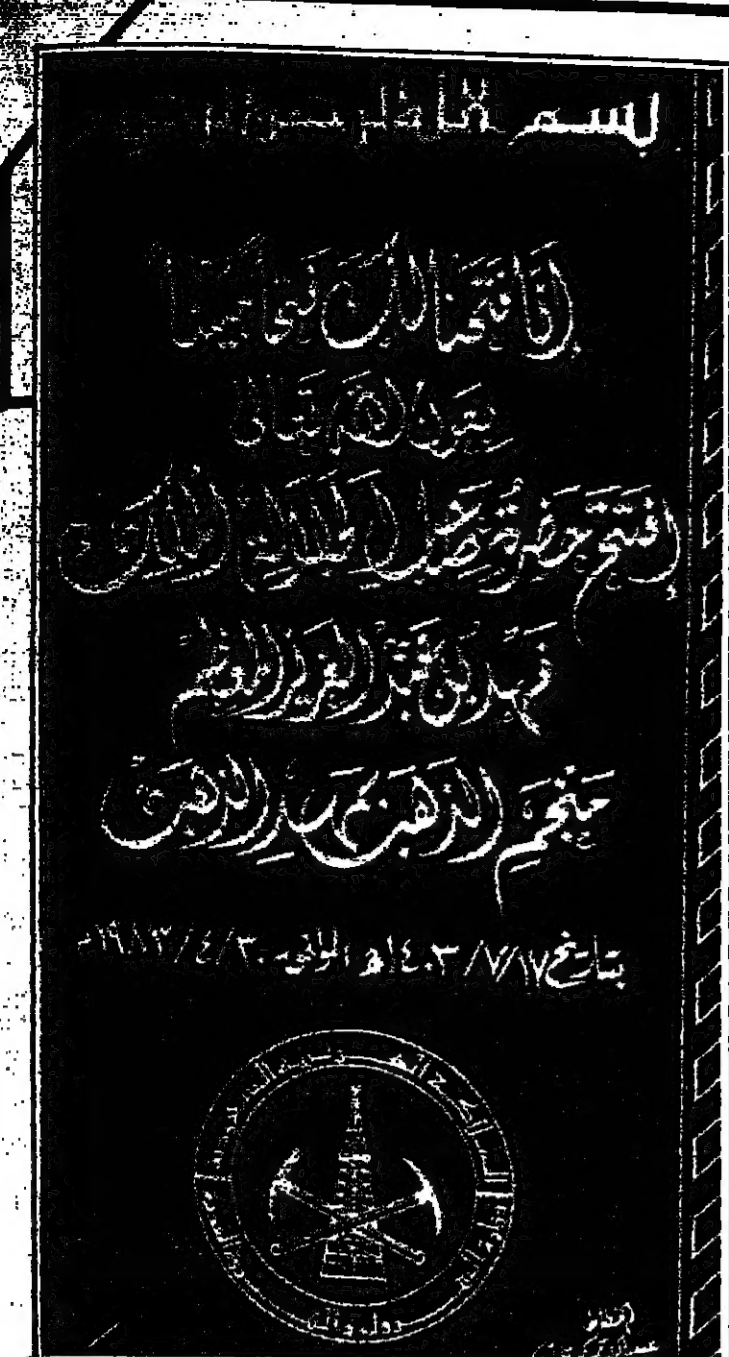 بسم الله الرحمن الرحيم
إنا فتحنا لك فتحا مبينا
بعون الله تعالى
إفتتح حضرة صاحب الجلالة الملك
فهد بن عبد العزيز المعظم
منجم الذهب بمهد الذهب
بتاريخ ١٤٠٣/٧/١٧هـ الموافق ١٩٨٣/٤/٣٠م